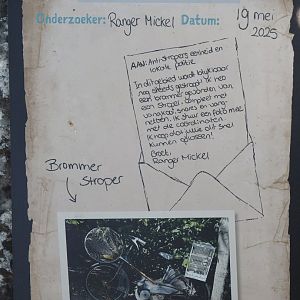 Onderzoeker: Ranger Mickel Datum: 19 mei
2025
AAN: Anti-stropers eenheid en
lokale politie
In dit gebied wordt blijkbaar
nog steeds gestroopt. Ik heb
een brommer gevonden van
een stroper, compleet met
vangkooi, snares en vang-
netten. Ik stuur een foto mee
met de coördinaten.
Ik hoop dat jullie dit snel
kunnen oplossen!
Groet,
Ranger Mickel
Brommer
stroper